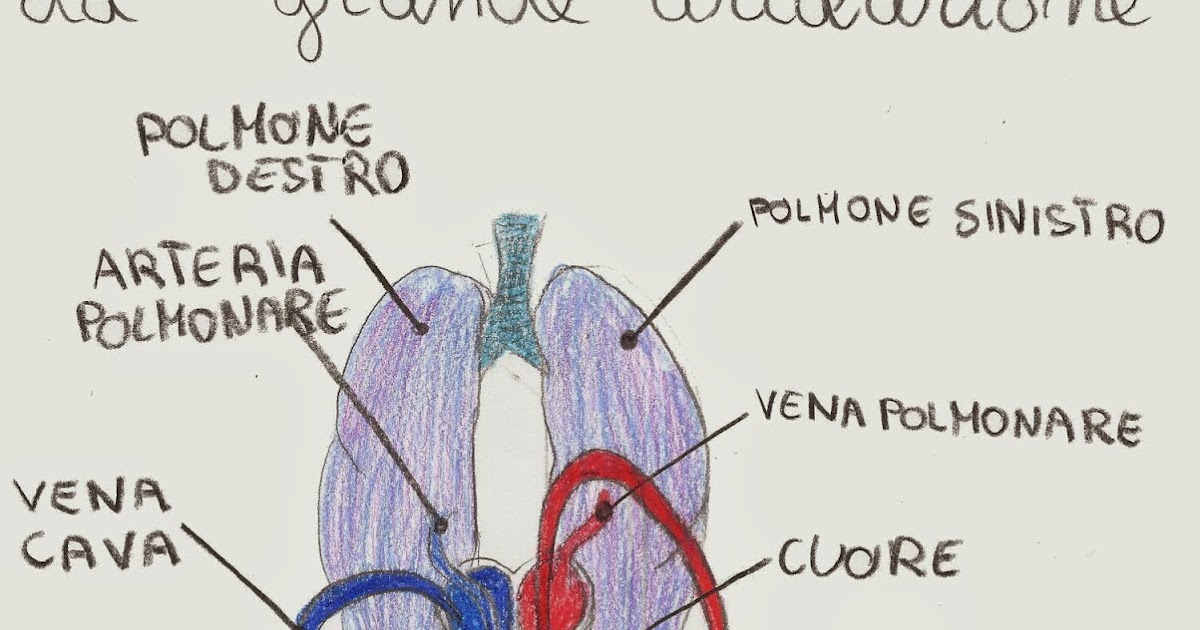 La grande circolazione
POLMONE
DESTRO
POLMONE SINISTRO
ARTERIA
POLMONARE
VENA POLMONARE
VENA
CAVA
CUORE